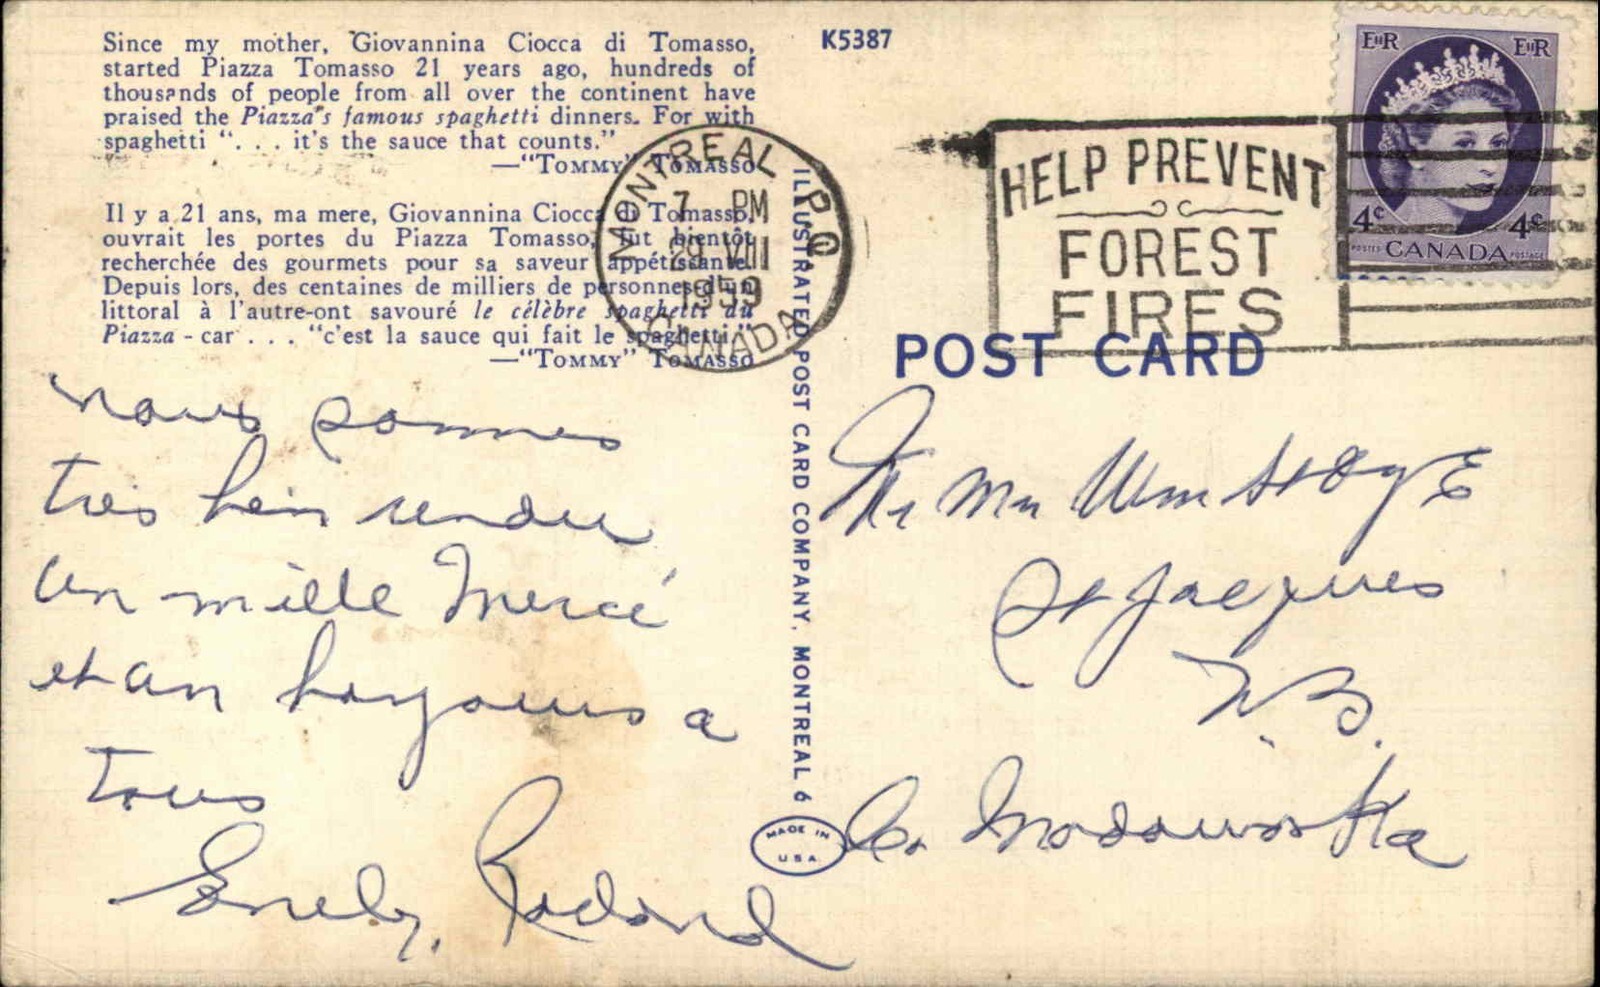 Since my mother, Giovannina Ciocca di Tomasso,
started Piazza Tomasso 21 years ago, hundreds of
thousands of people from all over the continent have
praised the Piazza's famous spaghetti dinners. For with
spaghetti ". . . it's the sauce that counts."
—"TOMMY" TOMASSO
Il y a 21 ans, ma mere, Giovannina Ciocca di Tomasso,
ouvrait les portes du Piazza Tomasso, fut bientôt
recherchée des gourmets pour sa saveur appétissante.
Depuis lors, des centaines de milliers de personnes d'un
littoral à l'autre-ont savouré le célèbre spaghetti du
Piazza - car . . . "c'est la sauce qui fait le spaghetti."
—"TOMMY" TOMASSO
nous sommes
très bein rendu
un mille Mercé
et un bonjours a
tous
Emely, Rodond
K5387
MONTREAL P.Q.
7 PM
29 VIII
1959
CANADA
HELP PREVENT
FOREST
FIRES
EIIR EIIR
4¢ 4¢
POSTES CANADA POSTAGE
POST CARD
ILLUSTRATED POST CARD COMPANY, MONTREAL 6
MADE IN
USA
Mr Mrs Wm
St Jacques
N.B.
Co. Madawaska